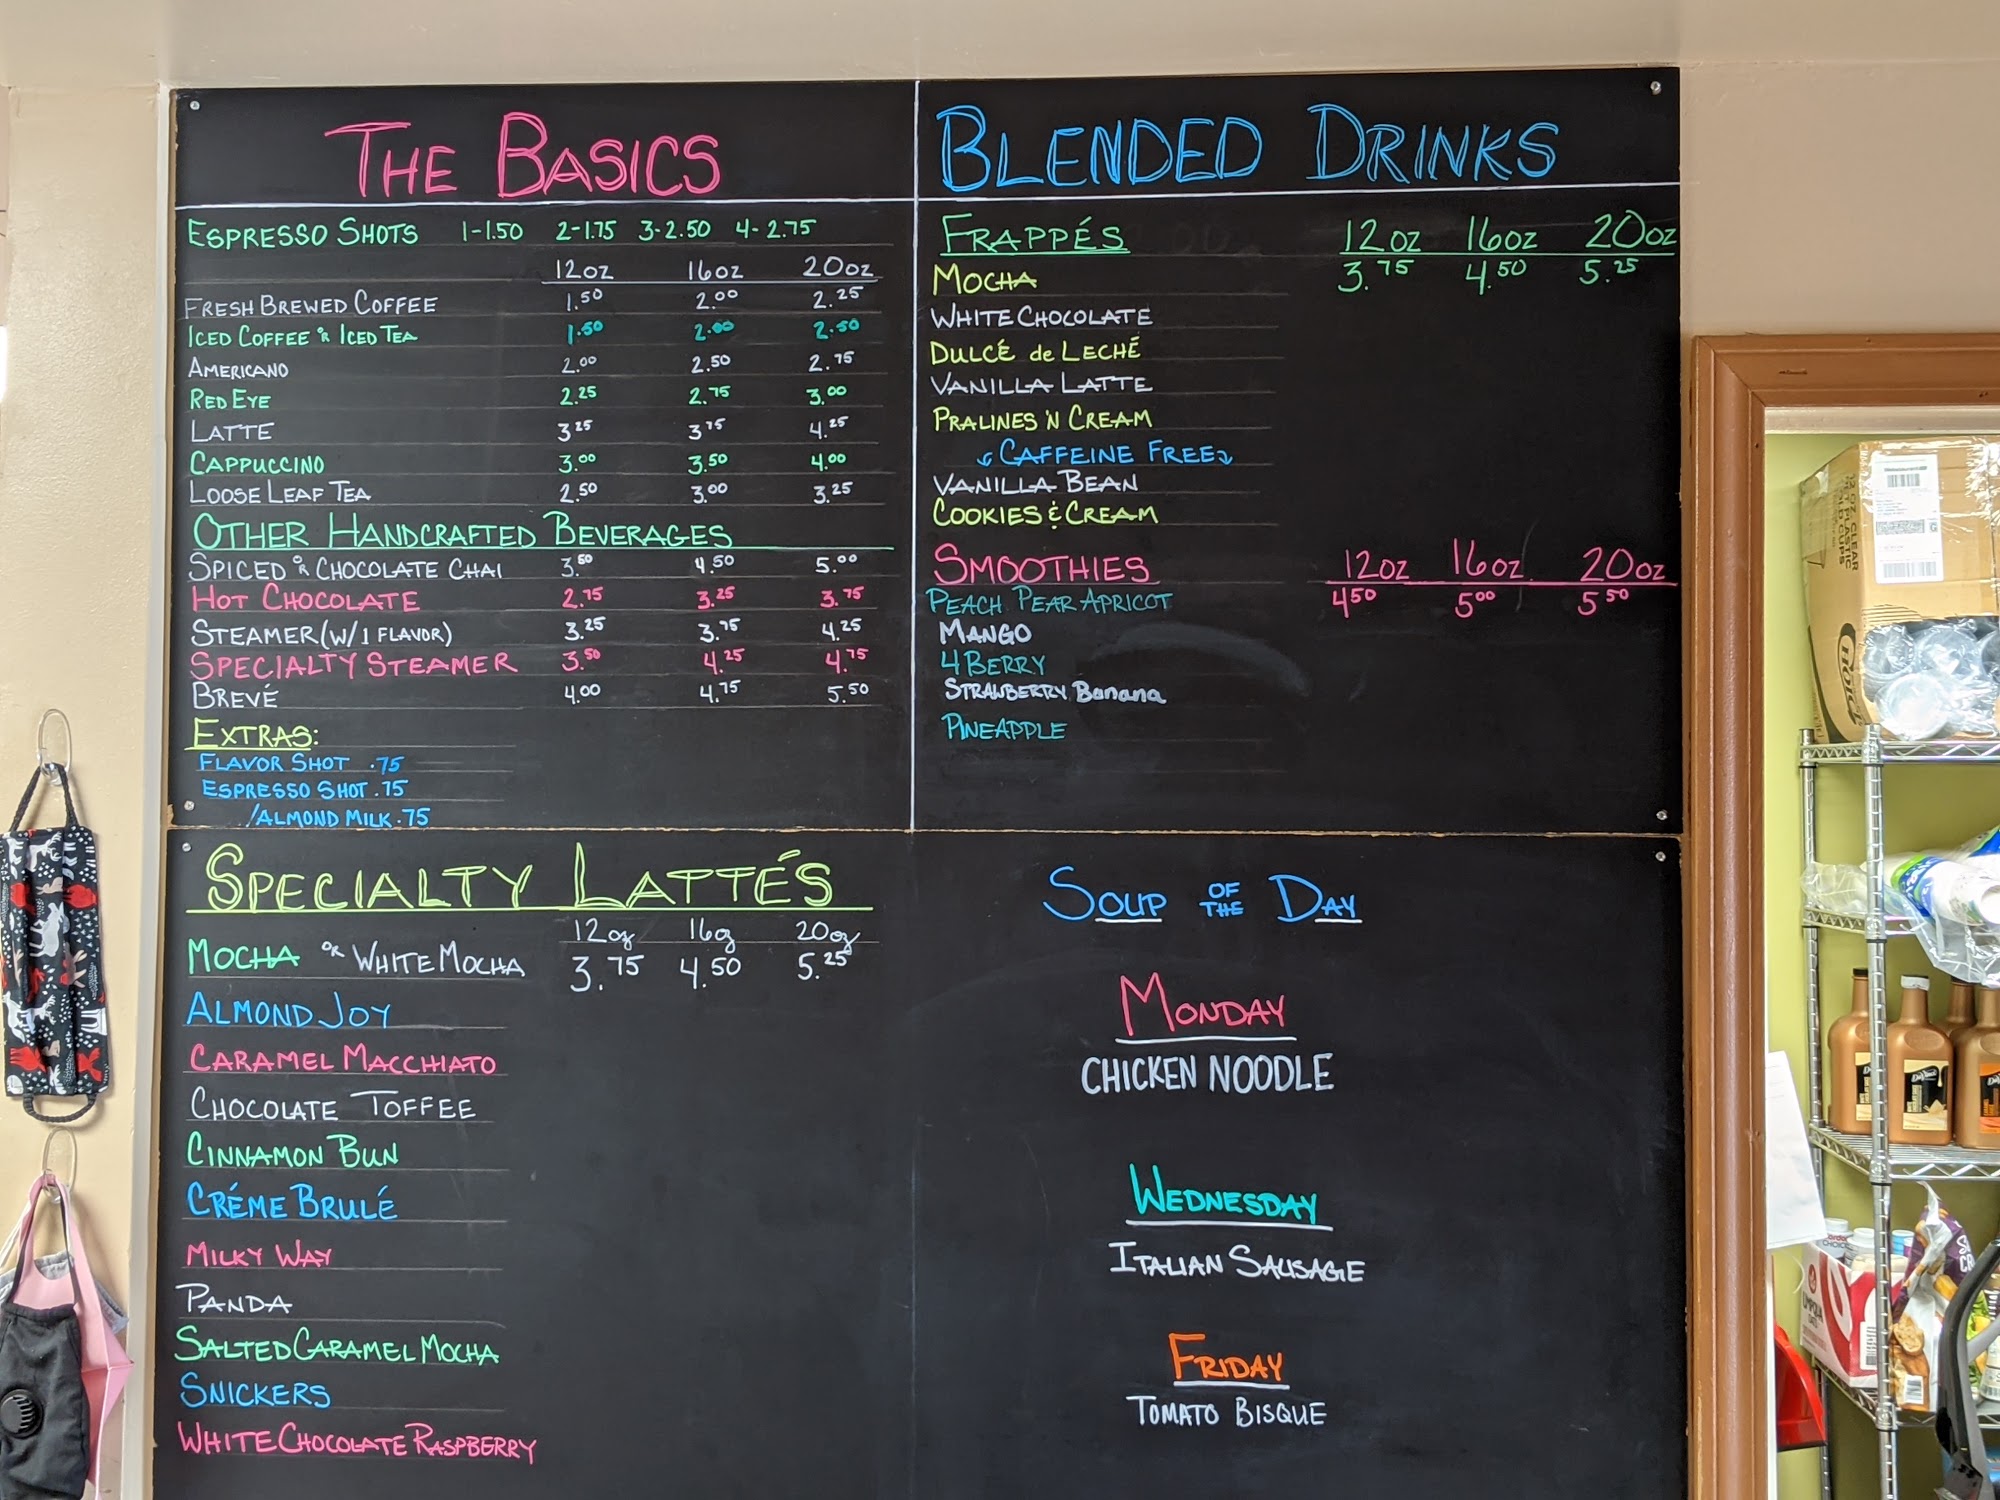 THE BASICS
ESPRESSO SHOTS 1-1.50 2-1.75 3-2.50 4-2.75
12oz 16oz 20oz
FRESH BREWED COFFEE 1.50 2.00 2.25
ICED COFFEE OR ICED TEA 1.50 2.00 2.50
AMERICANO 2.00 2.50 2.75
RED EYE 2.25 2.75 3.00
LATTE 3 25 3 75 4.25
CAPPUCCINO 3.00 3.50 4.00
LOOSE LEAF TEA 2.50 3.00 3.25
OTHER HANDCRAFTED BEVERAGES
SPICED OR CHOCOLATE CHAI 3.50 4.50 5.00
HOT CHOCOLATE 2.75 3.25 3.75
STEAMER (W/1 FLAVOR) 3.25 3.75 4.25
SPECIALTY STEAMER 3.50 4.25 4.75
BREVÉ 4.00 4.75 5.50
EXTRAS:
FLAVOR SHOT .75
ESPRESSO SHOT .75
/ALMOND MILK .75
BLENDED DRINKS
FRAPPÉS 12oz 16oz 20oz
MOCHA 3.75 4.50 5.25
WHITE CHOCOLATE
DULCÉ de LECHÉ
VANILLA LATTE
PRALINES 'N CREAM
CAFFEINE FREE
VANILLA BEAN
COOKIES & CREAM
SMOOTHIES 12oz 16oz 20oz
PEACH PEAR APRICOT 4 50 5 00 5 50
MANGO
4 BERRY
STRAWBERRY Banana
PINEAPPLE
SPECIALTY LATTÉS
12oz 16oz 20oz
MOCHA OR WHITE MOCHA 3.75 4.50 5.25
ALMOND JOY
CARAMEL MACCHIATO
CHOCOLATE TOFFEE
CINNAMON BUN
CRÉME BRULÉ
MILKY WAY
PANDA
SALTED CARAMEL MOCHA
SNICKERS
WHITE CHOCOLATE RASPBERRY
SOUP OF THE DAY
MONDAY
CHICKEN NOODLE
WEDNESDAY
ITALIAN SAUSAGE
FRIDAY
TOMATO BISQUE
12 OZ CLEAR
PLASTIC
COLD CUPS
CHOICE
DaVinci